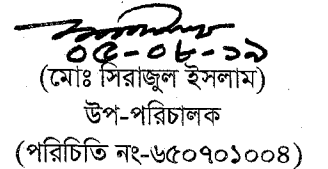 ০৫-০৮-১৯
(মোঃ সিরাজুল ইসলাম)
উপ-পরিচালক
(পরিচিতি নং-৬৫০৭০১০০৪)